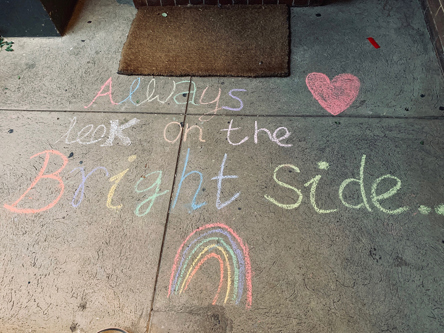 Always
look on the
Bright Side...